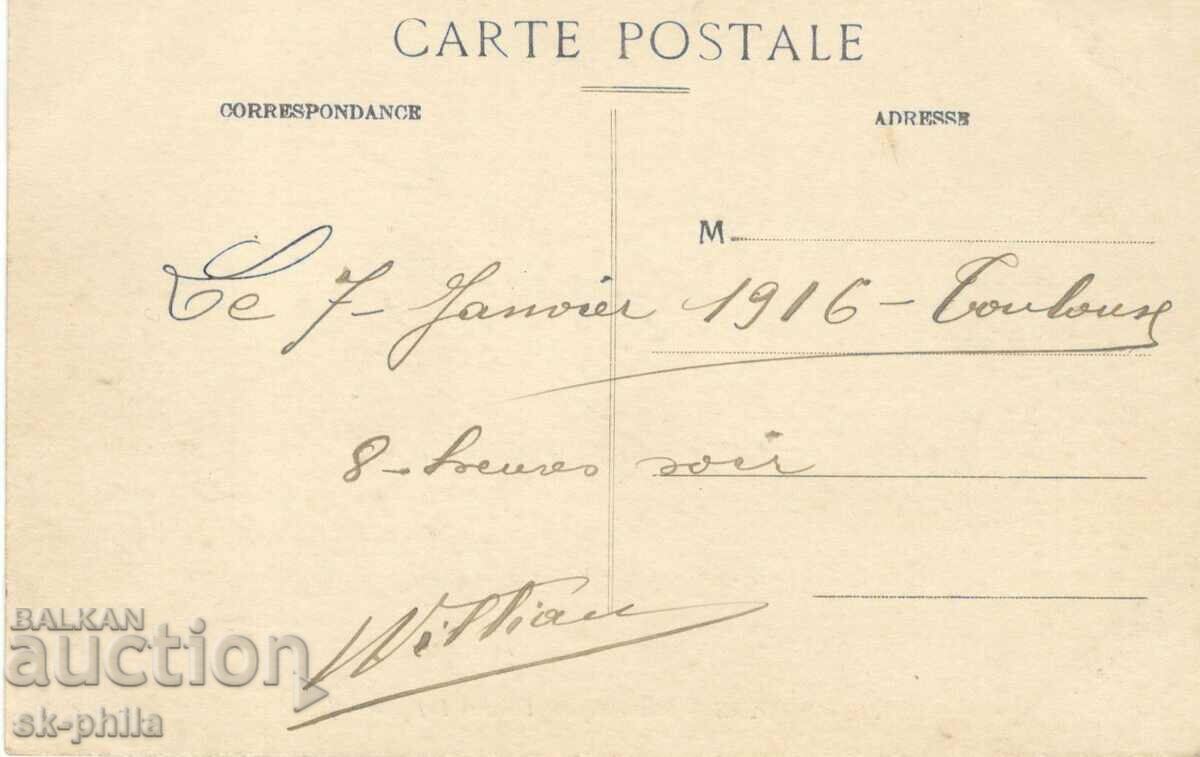 CARTE POSTALE
CORRESPONDANCE
ADRESSE
M
Le 7 - Janvier 1916 - Toulouse
8 - heures soir
BALKAN
auction
sk-phila